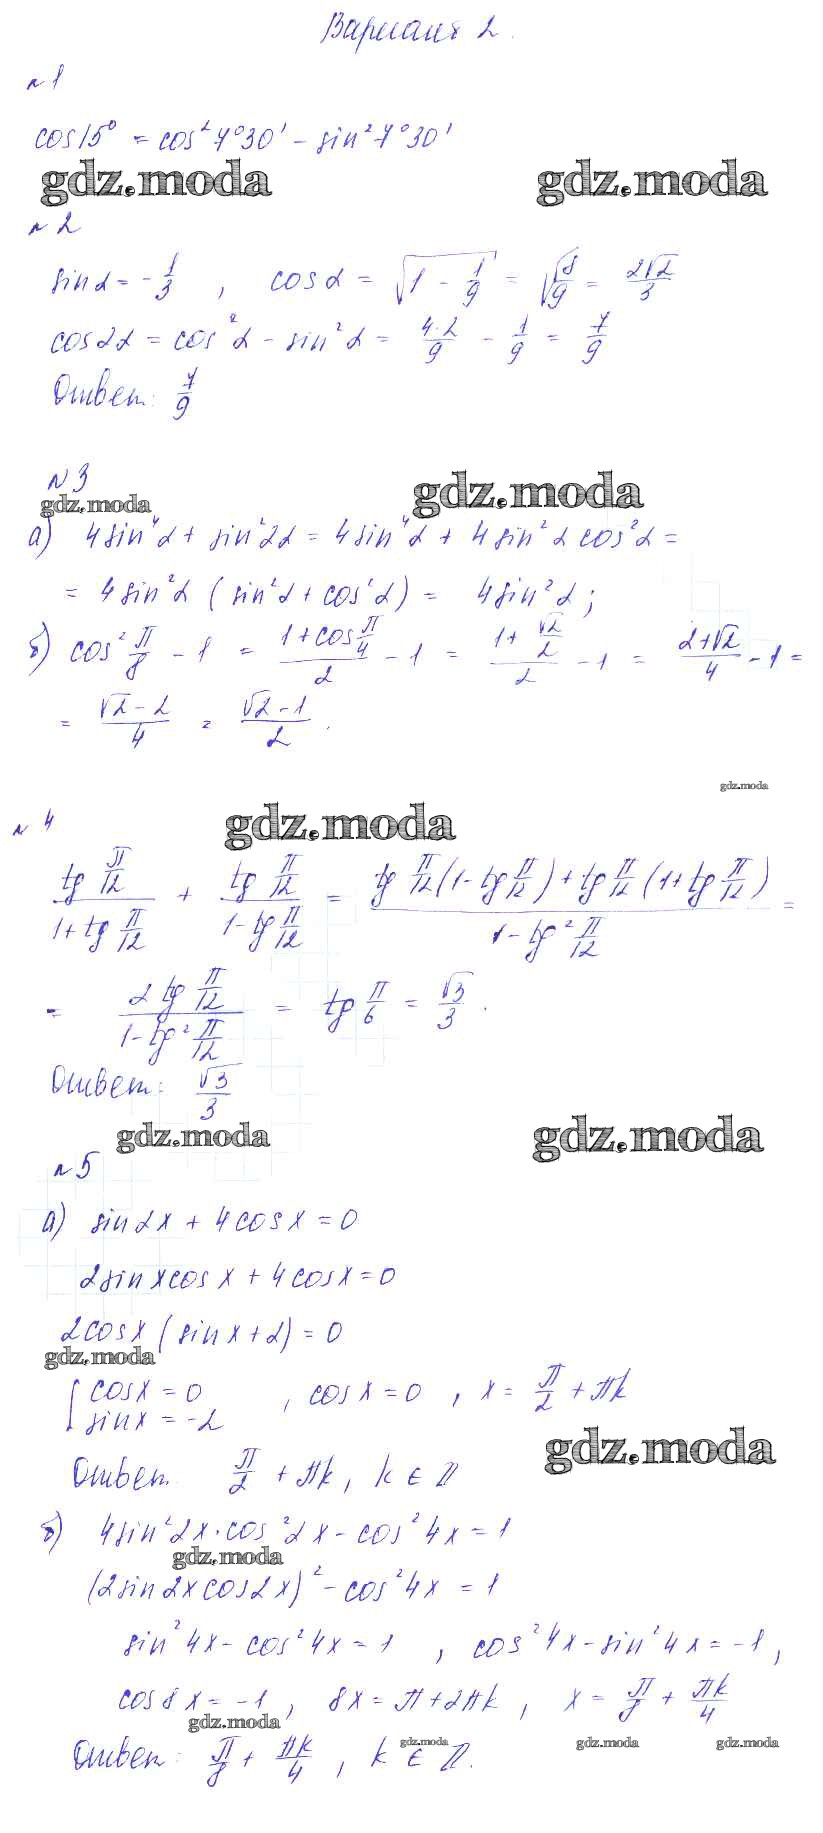 Вариант 2.
№1
cos15° = cos²7°30' - sin²7°30'
gdz.moda gdz.moda
№2
sinα = -1/3 , cosα = √(1 - 1/9) = √(8/9) = 2√2/3
cos2α = cos²α - sin²α = 4·2/9 - 1/9 = 7/9
Ответ: 7/9
№3
gdz.moda gdz.moda
а) 4sin⁴α + sin²2α = 4sin⁴α + 4sin²α cos²α =
= 4sin²α (sin²α + cos²α) = 4sin²α;
б) cos² π/8 - 1 = (1 + cos π/4)/2 - 1 = (1 + √2/2)/2 - 1 = (2+√2)/4 - 1 =
= (√2 - 2)/4 = (√2 - 1)/2.
gdz.moda
№4 gdz.moda
tg π/12 / (1 + tg π/12) + tg π/12 / (1 - tg π/12) = (tg π/12 (1 - tg π/12) + tg π/12 (1 + tg π/12)) / (1 - tg² π/12) =
= 2 tg π/12 / (1 - tg² π/12) = tg π/6 = √3/3.
Ответ: √3/3
gdz.moda gdz.moda
№5
а) sin2x + 4cosx = 0
2sinxcosx + 4cosx = 0
2cosx (sinx + 2) = 0
gdz.moda
[cosx = 0 , cosx = 0 , x = π/2 + πk
sinx = -2
gdz.moda
Ответ: π/2 + πk, k ∈ Z
б) 4sin²2x·cos²2x - cos²4x = 1
gdz.moda
(2sin2xcos2x)² - cos²4x = 1
sin²4x - cos²4x = 1 , cos²4x - sin²4x = -1,
cos8x = -1, 8x = π + 2πk, x = π/8 + πk/4
gdz.moda
Ответ: π/8 + πk/4, k ∈ Z.
gdz.moda gdz.moda gdz.moda